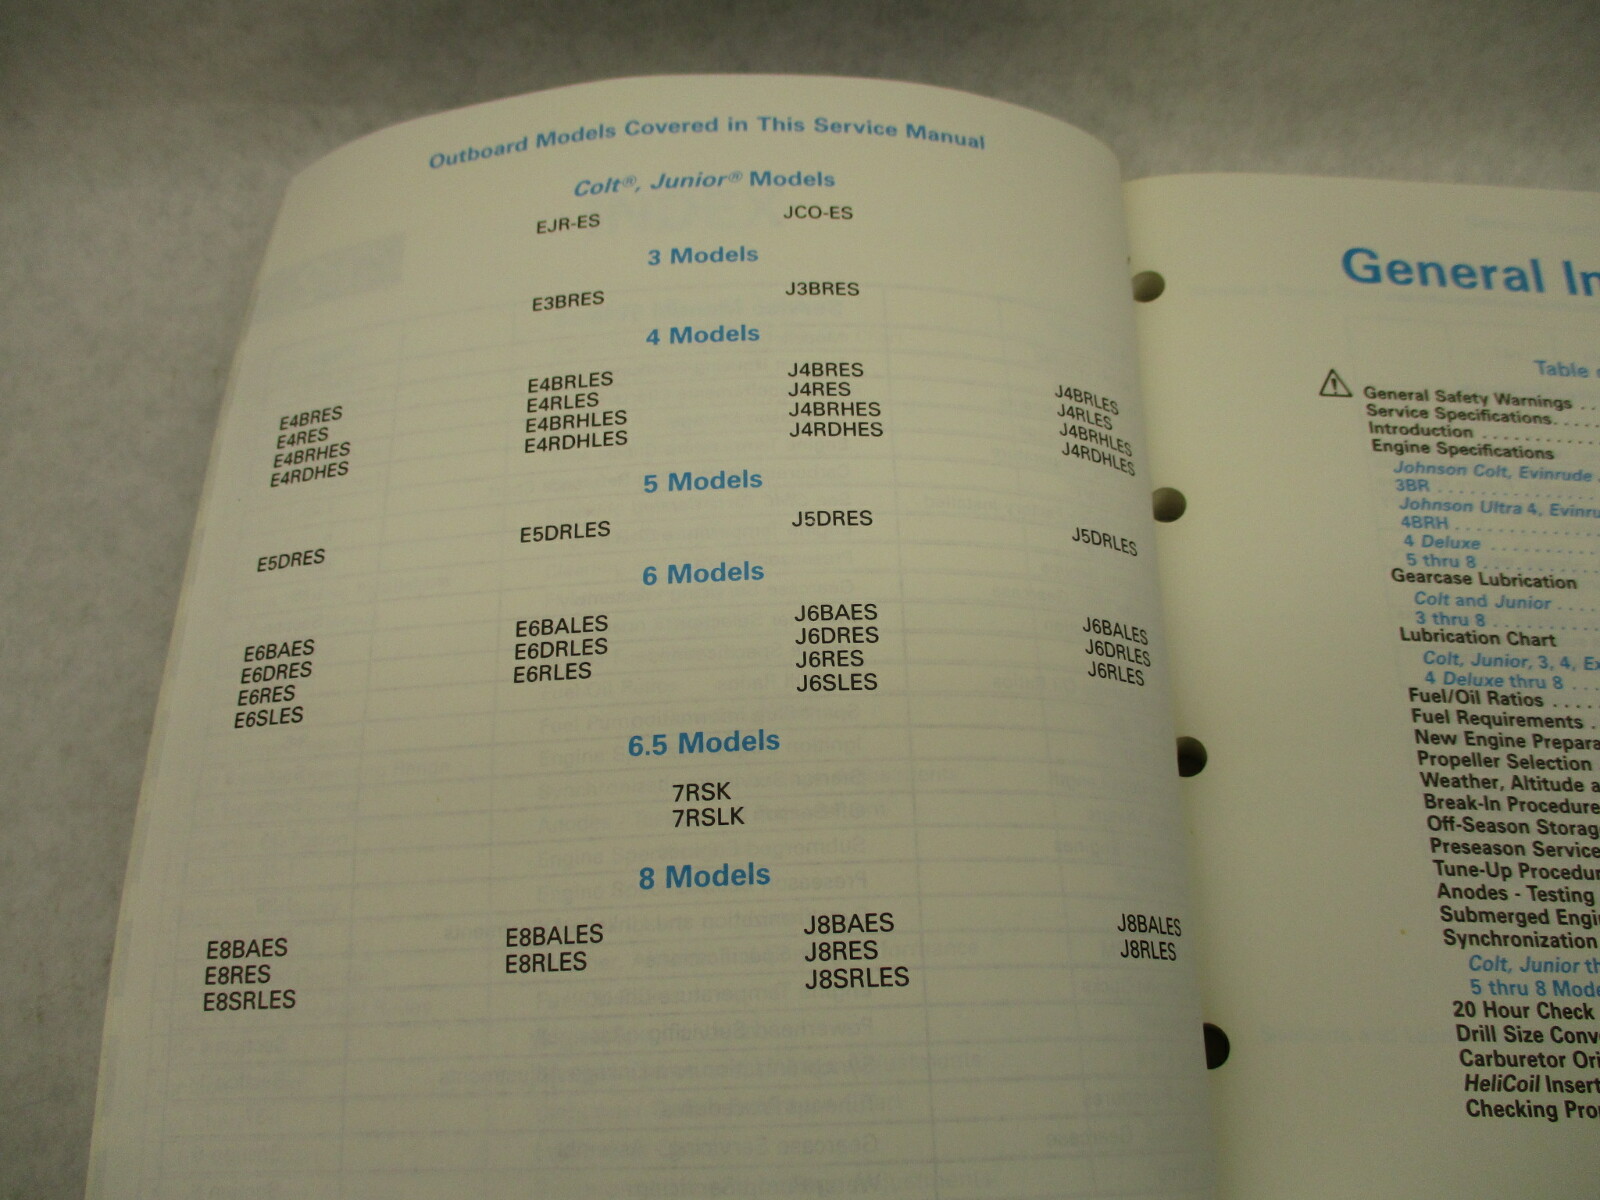 Outboard Models Covered in This Service Manual
Colt®, Junior® Models
EJR-ES JCO-ES
3 Models
E3BRES J3BRES
4 Models
E4BRES E4BRLES J4BRES J4BRLES
E4RES E4RLES J4RES J4RLES
E4BRHES E4BRHLES J4BRHES J4BRHLES
E4RDHES E4RDHLES J4RDHES J4RDHLES
5 Models
E5DRES E5DRLES J5DRES J5DRLES
6 Models
E6BAES E6BALES J6BAES J6BALES
E6DRES E6DRLES J6DRES J6DRLES
E6RES E6RLES J6RES J6RLES
E6SLES J6SLES
6.5 Models
7RSK
7RSLK
8 Models
E8BAES E8BALES J8BAES J8BALES
E8RES E8RLES J8RES J8RLES
E8SRLES J8SRLES
General In
Table
General Safety Warnings . .
Service Specifications. . . .
Introduction . . . . . . . . .
Engine Specifications
Johnson Colt, Evinrude
3BR . . . . . . . . . . . .
Johnson Ultra 4, Evinru
4BRH . . . . . . . . . . .
4 Deluxe . . . . . . . . .
5 thru 8 . . . . . . . . .
Gearcase Lubrication
Colt and Junior . . . .
3 thru 8 . . . . . . . . .
Lubrication Chart
Colt, Junior, 3, 4, Ex
4 Deluxe thru 8 . . . .
Fuel/Oil Ratios . . . . .
Fuel Requirements .
New Engine Prepara
Propeller Selection
Weather, Altitude a
Break-In Procedure
Off-Season Storag
Preseason Service
Tune-Up Procedur
Anodes - Testing
Submerged Engi
Synchronization
Colt, Junior th
5 thru 8 Mode
20 Hour Check
Drill Size Conv
Carburetor Ori
HeliCoil Insert
Checking Pro